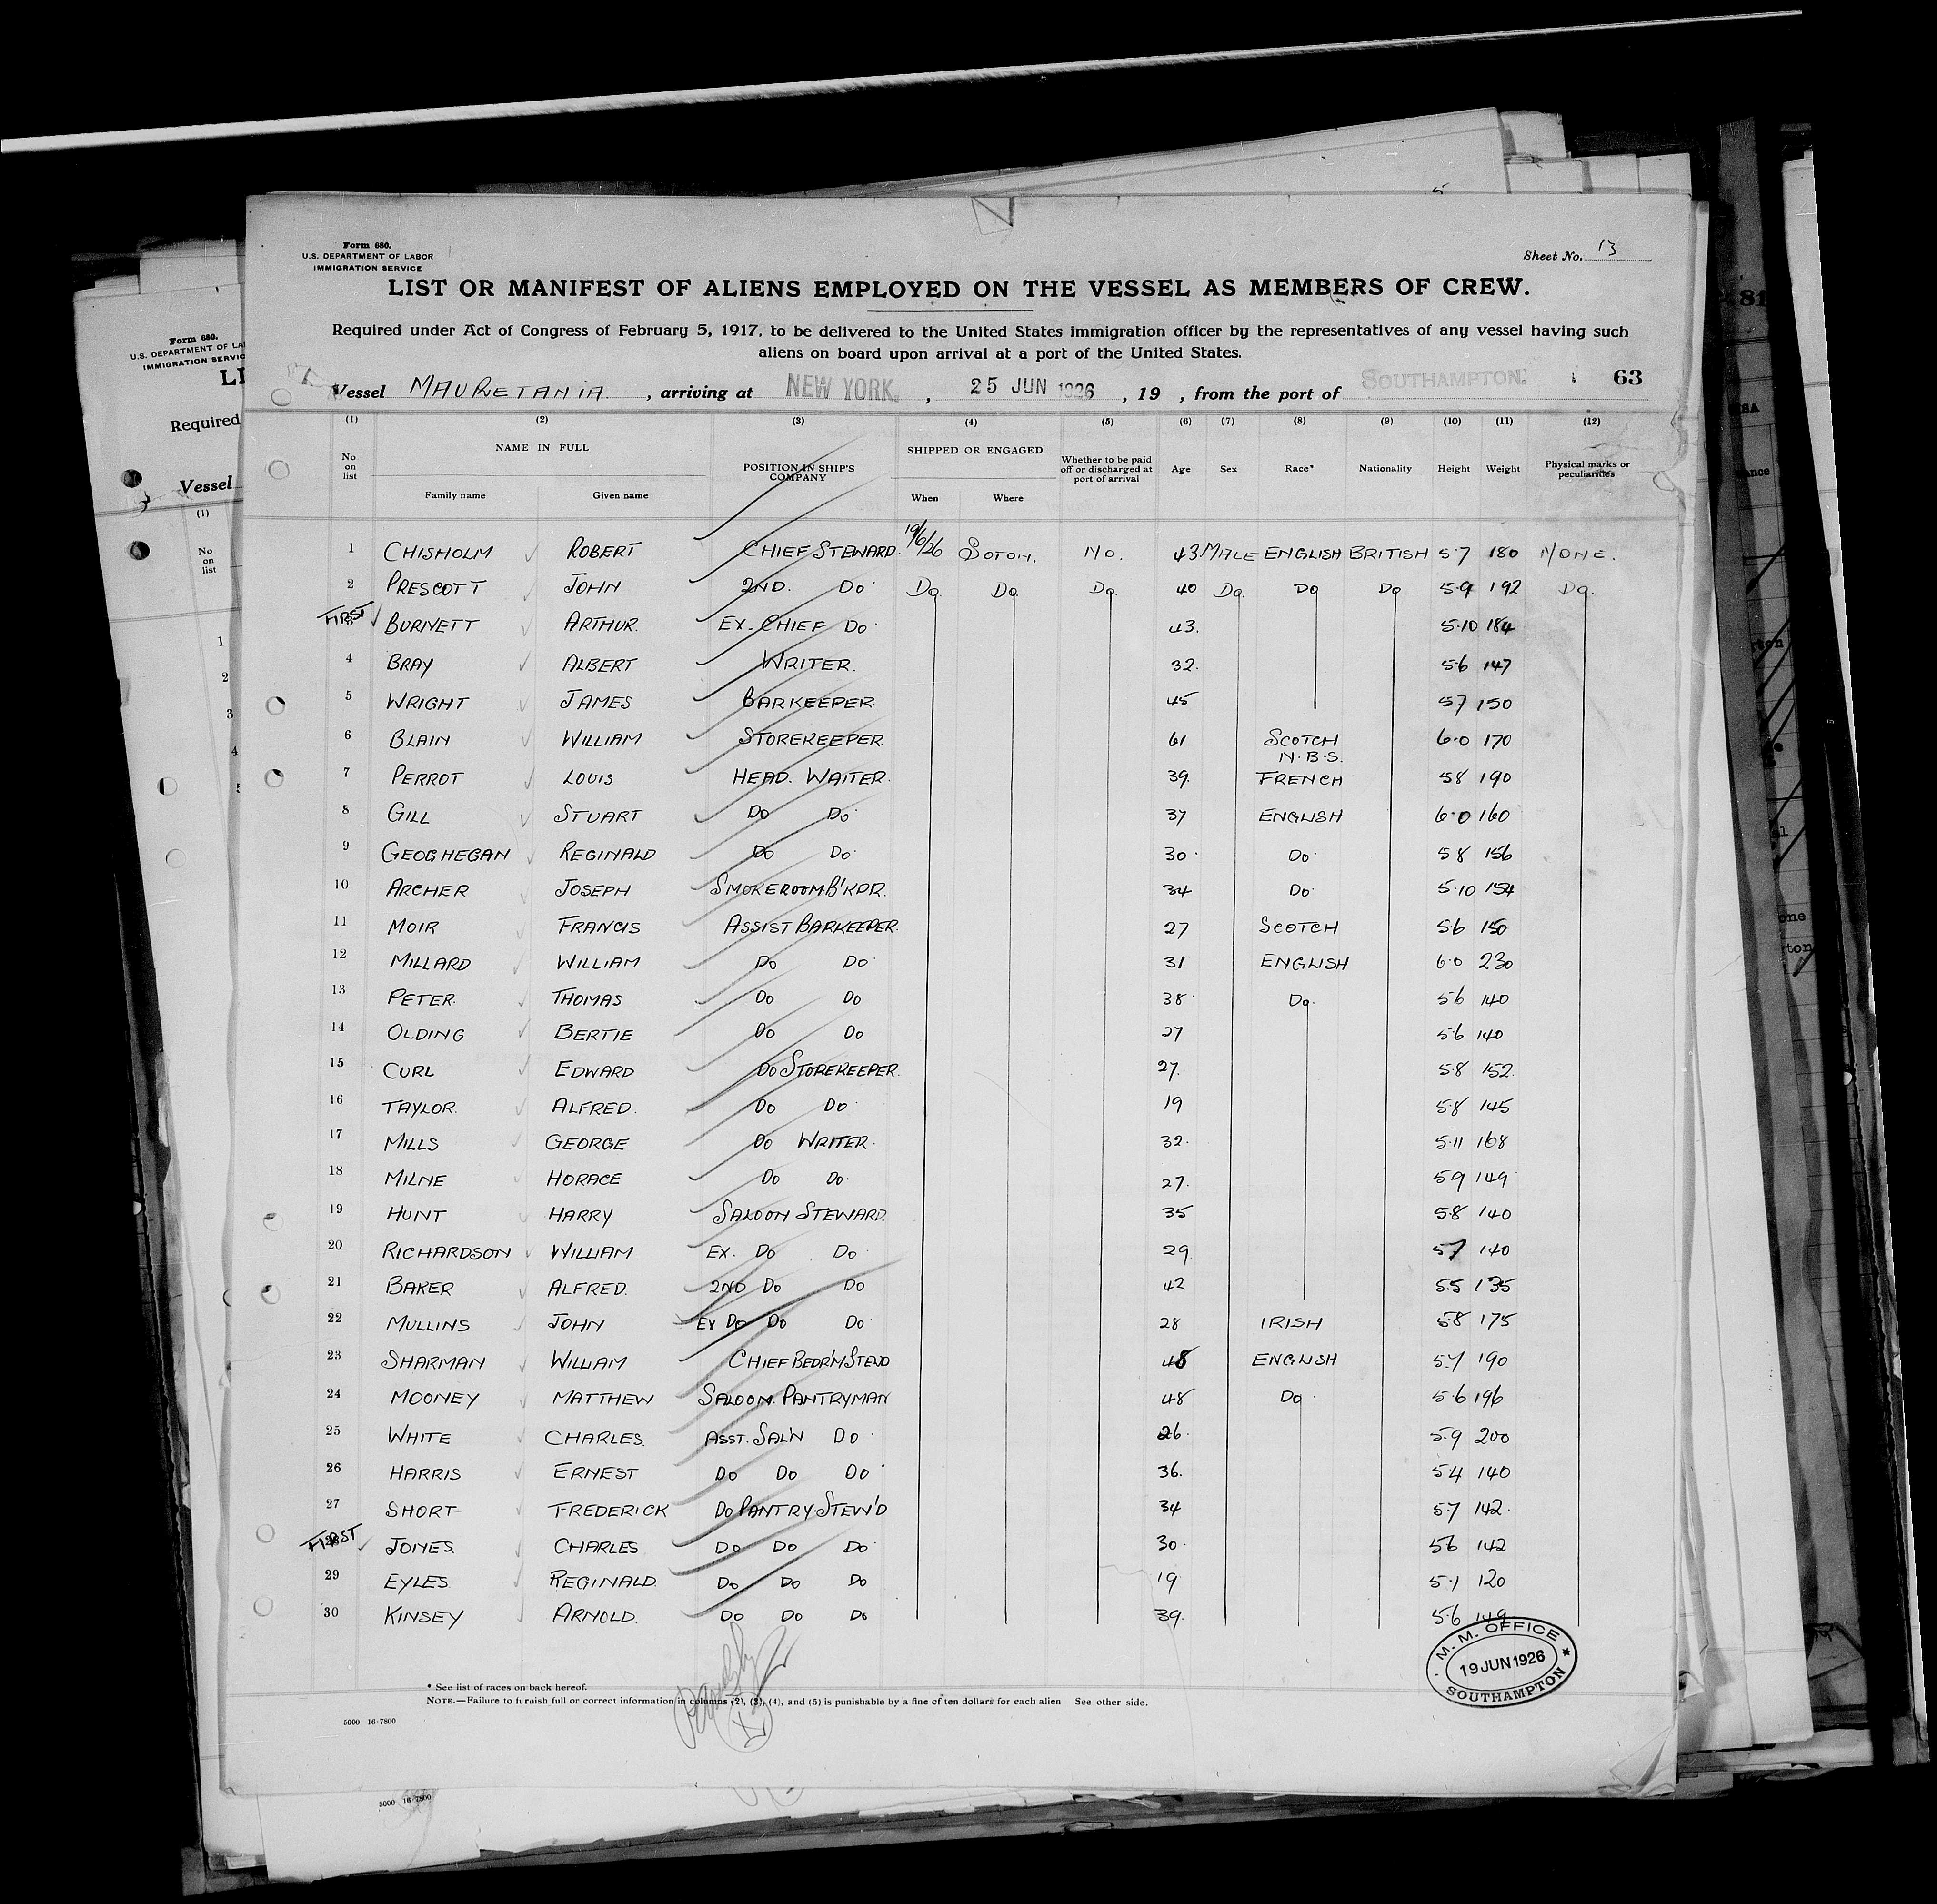 Form 680.
U.S. DEPARTMENT OF LABOR
IMMIGRATION SERVICE
Sheet No. 13
LIST OR MANIFEST OF ALIENS EMPLOYED ON THE VESSEL AS MEMBERS OF CREW.
Required under Act of Congress of February 5, 1917, to be delivered to the United States immigration officer by the representatives of any vessel having such
aliens on board upon arrival at a port of the United States.
Vessel MAURETANIA, arriving at NEW YORK., 25 JUN 1926, 19 , from the port of SOUTHAMPTON. 63
(1) (2) (3) (4) (5) (6) (7) (8) (9) (10) (11) (12)
No on list NAME IN FULL Family name Given name POSITION IN SHIP'S COMPANY SHIPPED OR ENGAGED When Where Whether to be paid off or discharged at port of arrival Age Sex Race* Nationality Height Weight Physical marks or peculiarities
1 CHISHOLM ROBERT CHIEF STEWARD. 19/6/26 SOTON. NO. 43 MALE ENGLISH BRITISH 5·7 180 NONE.
2 PRESCOTT JOHN 2ND. DO DO. DO. DO. 40 DO. DO DO 5·9 192 DO.
FIRST BURNETT ARTHUR. EX. CHIEF DO 43. 5·10 184
4 BRAY ALBERT WRITER. 32. 5·6 147
5 WRIGHT JAMES BARKEEPER. 45 5·7 150
6 BLAIN WILLIAM STOREKEEPER. 61 SCOTCH 6·0 170
N.B.S.
7 PERROT LOUIS HEAD. WAITER. 39. FRENCH 5·8 190
8 GILL STUART DO DO 37 ENGLISH 6·0 160
9 GEOGHEGAN REGINALD DO DO 30 DO 5·8 156
10 ARCHER JOSEPH SMOKEROOM B'KPR. 34 DO 5·10 154
11 MOIR FRANCIS ASSIST BARKEEPER. 27 SCOTCH 5·6 150
12 MILLARD WILLIAM DO DO 31 ENGLISH 6·0 230
13 PETER. THOMAS DO DO 38 DO. 5·6 140
14 OLDING BERTIE DO DO 27 5·6 140
15 CURL EDWARD DO STOREKEEPER. 27. 5·8 152.
16 TAYLOR. ALFRED. DO DO 19 5·8 145
17 MILLS GEORGE DO WRITER. 32. 5·11 168
18 MILNE HORACE DO DO. 27. 5·9 149
19 HUNT HARRY SALOON STEWARD. 35 5·8 140
20 RICHARDSON WILLIAM EX. DO DO 29. 5·7 140
21 BAKER ALFRED. 2ND DO DO 42 5·5 135
22 MULLINS JOHN EX DO DO DO 28 IRISH 5·8 175
23 SHARMAN WILLIAM CHIEF BEDR'M STEWD 48 ENGLISH 5·7 190
24 MOONEY MATTHEW SALOON. PANTRYMAN 48 DO 5·6 196
25 WHITE CHARLES. ASST. SAL'N DO 26. 5·9 200
26 HARRIS ERNEST DO DO DO 36. 5·4 140
27 SHORT FREDERICK DO PANTRY STEW'D 34 5·7 142.
FIRST JONES. CHARLES DO DO DO 30. 5·6 142
29 EYLES. REGINALD. DO DO DO 19 5·1 120
30 KINSEY ARNOLD. DO DO DO 39. 5·6 149
M. M. OFFICE
19 JUN 1926
SOUTHAMPTON
* See list of races on back hereof.
NOTE.—Failure to furnish full or correct information in columns (2), (3), (4), and (5) is punishable by a fine of ten dollars for each alien See other side.
5000 16-7800
5000 16-7800